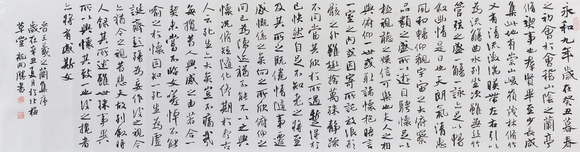 永和九年歲在癸丑暮春
之初會于會稽山陰之蘭亭
脩稧事也羣賢畢至少長咸
集此地有崇山峻領茂林脩竹
又有清流激湍暎帶左右引以
為流觴曲水列坐其次雖無絲竹
管弦之盛一觴一詠亦足以暢
敘幽情是日也天朗氣清惠
風和暢仰觀宇宙之大俯察
品類之盛所以遊目騁懷足以
極視聽之娛信可樂也夫人之相
與俯仰一世或取諸懷抱悟言
一室之內或因寄所託放浪形
骸之外雖趣舍萬殊靜躁
不同當其欣於所遇暫得於
己快然自足不知老之將至及
其所之既惓情隨事遷
感慨係之矣向之所欣俛仰之
間已為陳迹猶不能不以之興
懷況脩短隨化終期於盡古
人云死生亦大矣豈不痛哉
每攬昔人興感之由若合一
契未嘗不臨文嗟悼不能
喻之於懷固知一死生為虛
誕齊彭殤為妄作後之視今
亦猶今之視昔悲夫故列敘時
人錄其所述雖世殊事異
所以興懷其致一也後之攬者
亦將有感於斯文
晉王羲之蘭亭集序
歲在辛丑夏月於北極
草堂勝書